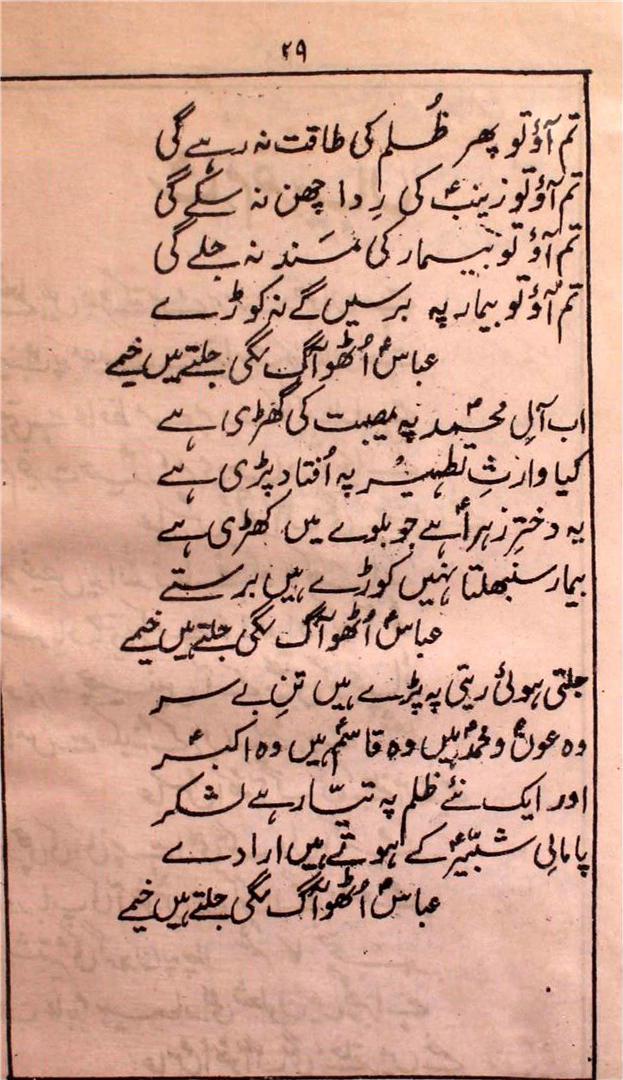 ۲۹
تم آؤ تو پھر ظُلم کی طاقت نہ رہے گی
تم آؤ تو زینبؑ کی رِدا چھن نہ سکے گی
تم آؤ تو بیمار کی مَسند نہ جلے گی
تم آؤ تو بیمار پہ برسیں گے نہ کوڑے
عباسؑ اُٹھو آگ لگی جلتے ہیں خیمے
اب آلِ محمدؐ پہ مصیبت کی گھڑی ہے
کیا وارثِ تطہیر پہ اُفتاد پڑی ہے
یہ دخترِ زہراؑ ہے جو بلوے میں کھڑی ہے
بیمار سنبھلتا نہیں کوڑے ہیں برستے
عباسؑ اُٹھو آگ لگی جلتے ہیں خیمے
جلتی ہوئی ریتی پہ پڑے ہیں تنِ بے سر
وہ عونؑ و محمدؑ ہیں وہ قاسمؑ ہیں وہ اکبرؑ
اور ایک نئے ظلم پہ تیّار ہے لشکر
پامالیِ شبّیرؑ کے ہوتے ہیں ارادے
عباسؑ اُٹھو آگ لگی جلتے ہیں خیمے